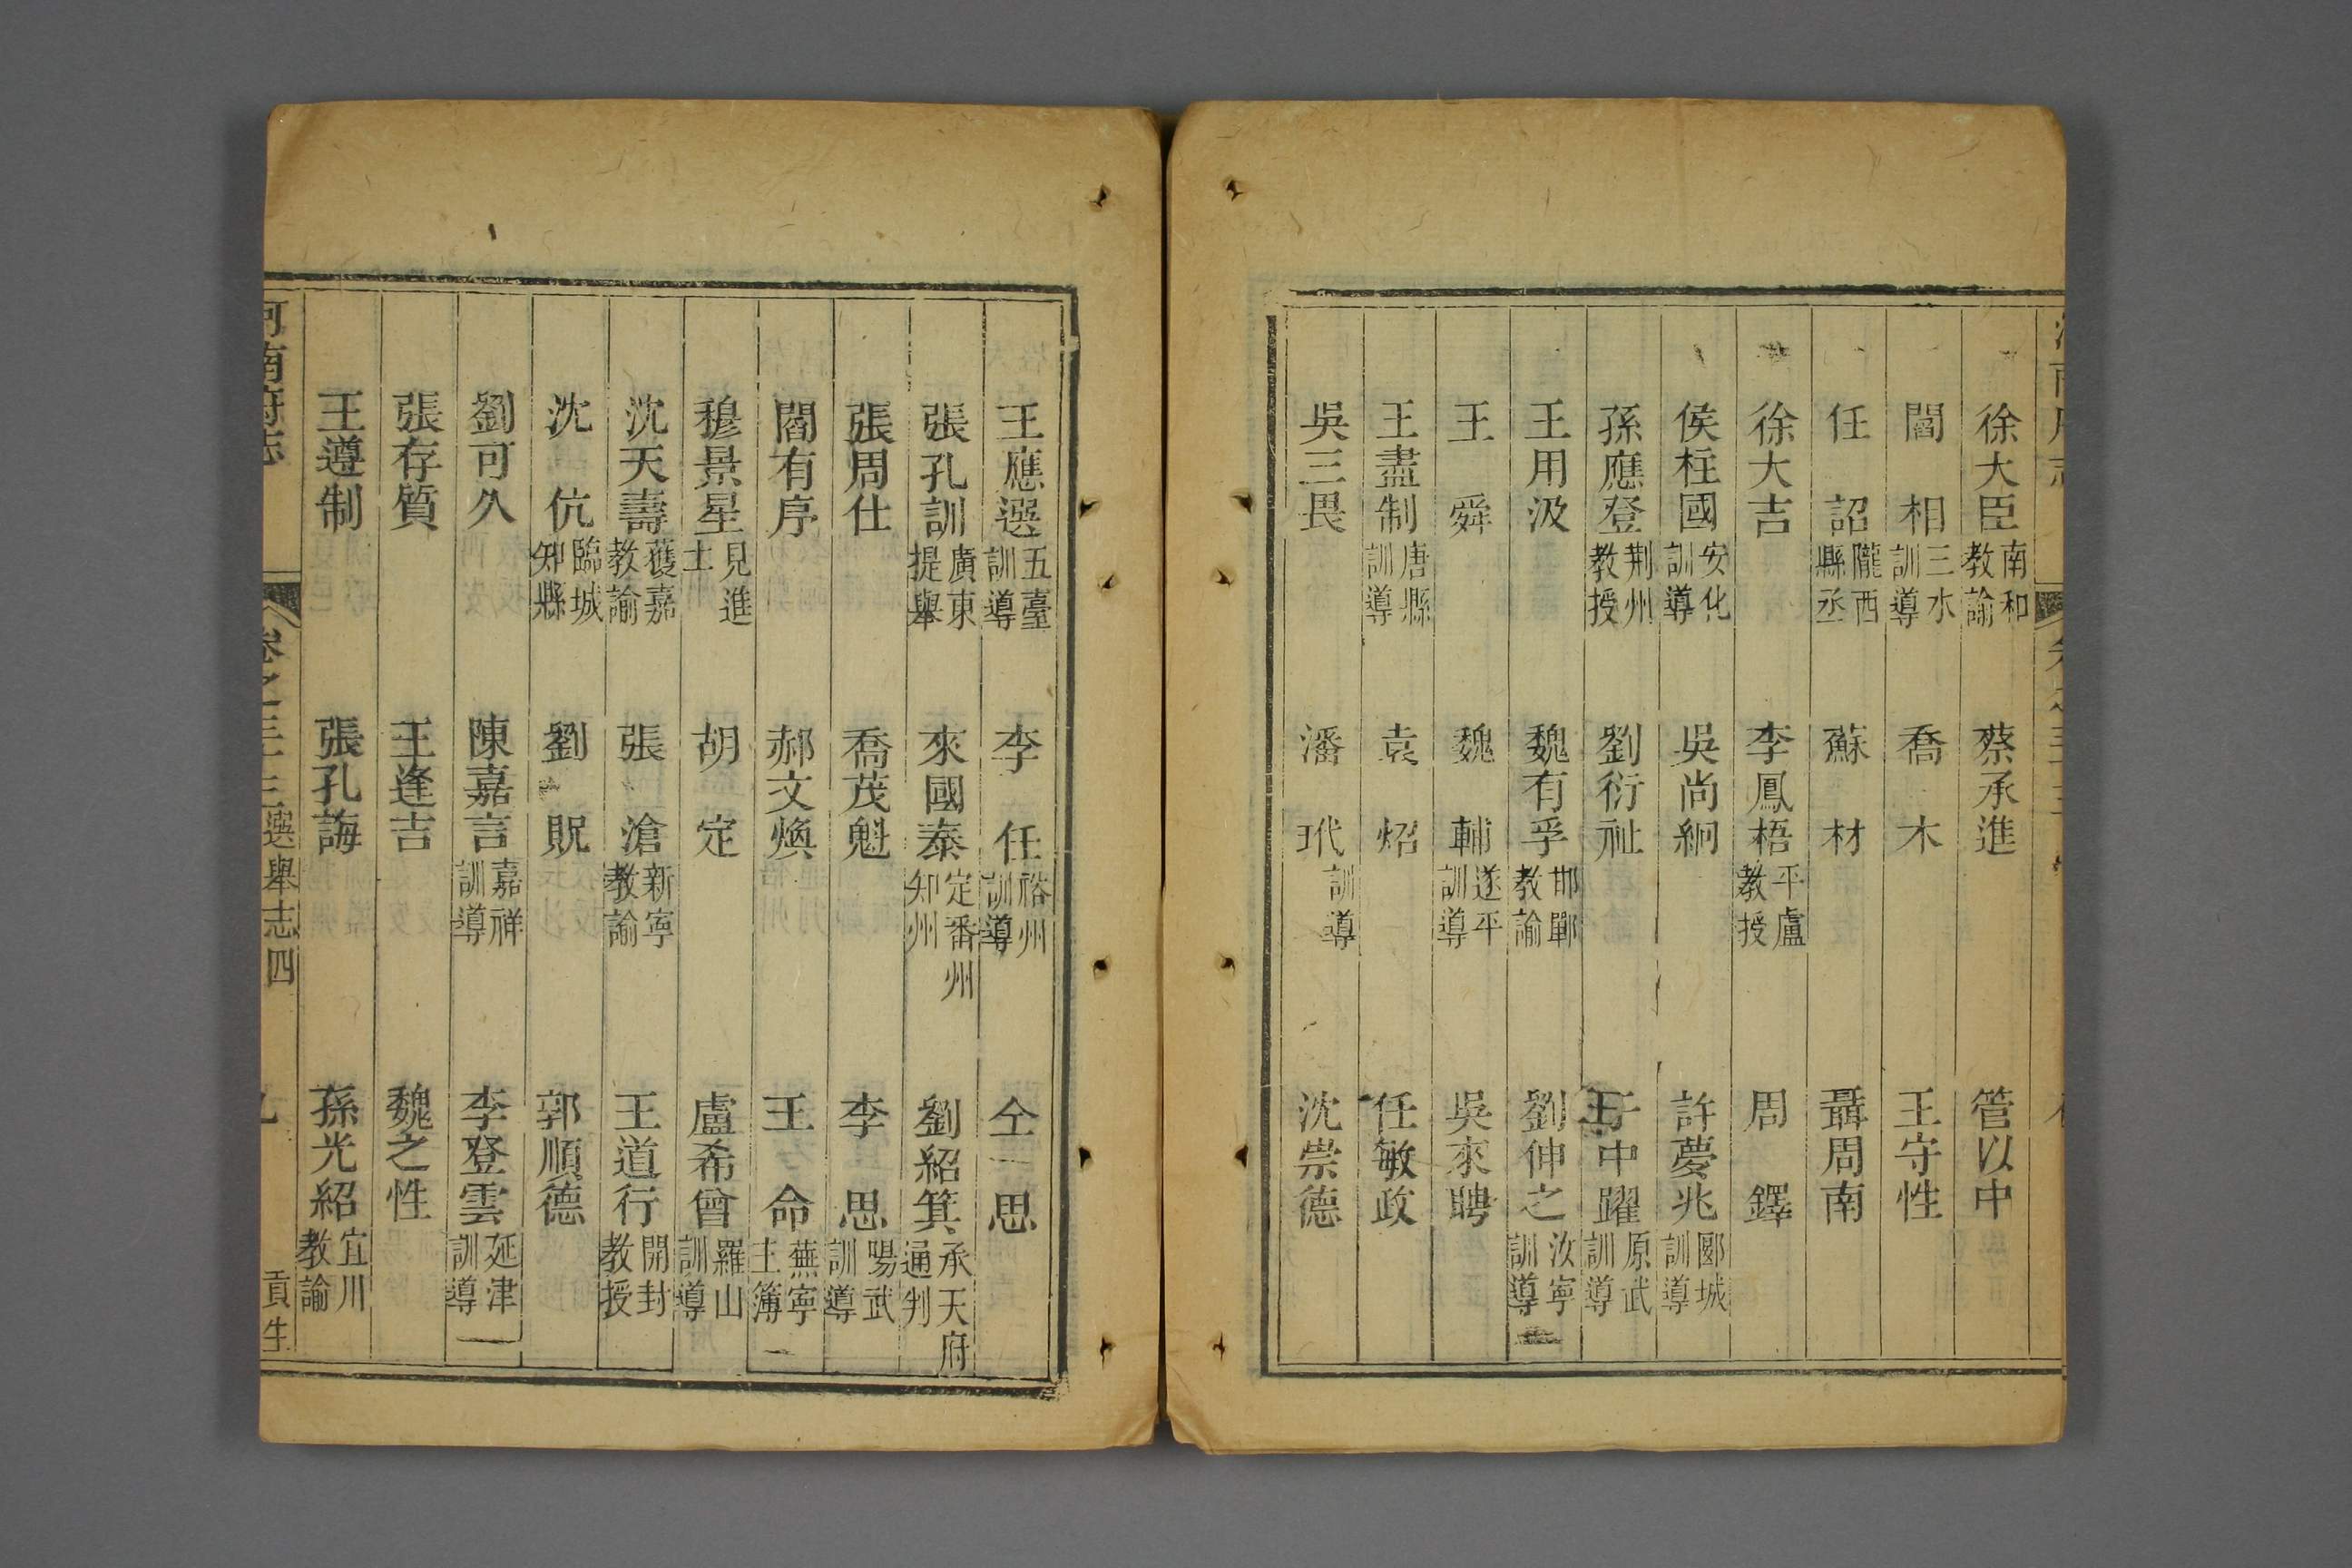 徐大臣 南和教諭 蔡承進 管以中
閻相 三水訓導 喬木 王守性
任詔 隴西縣丞 蘇材 聶周南
徐大吉 李鳳梧 平盧教授 周鐸
侯柱國 安化訓導 吳尚絅 許夢兆 郾城訓導
孫應登 荆州教授 劉衍祉 中躍 原武訓導
王用汲 魏有孚 邯鄲教諭 劉伸之 汝寧訓導
王舜 魏輔 遂平訓導 吳來聘
王盡制 唐縣訓導 袁炤 任敏政
吳三畏 潘玳 訓導 沈崇德
王應選 五臺訓導 李任 裕州訓導 仝思
張孔訓 廣東提舉 來國泰 定番州知州 劉紹箕 承天府通判
張周仕 喬茂魁 李思 暘武訓導
閻有序 郝文煥 王命 蕪寧主簿
穆景星 見進士 胡定 盧希曾 羅山訓導
沈天壽 獲嘉教諭 張滄 新寧教諭 王道行 開封教授
沈伉 臨城知縣 劉貺 郭順德
劉可久 陳嘉言 嘉祥訓導 李登雲 延津訓導
張存質 王逢吉 魏之性
王遵制 張孔誨 孫光紹 宜川教諭
河南府志 卷之三十三 選舉志四 九 貢生